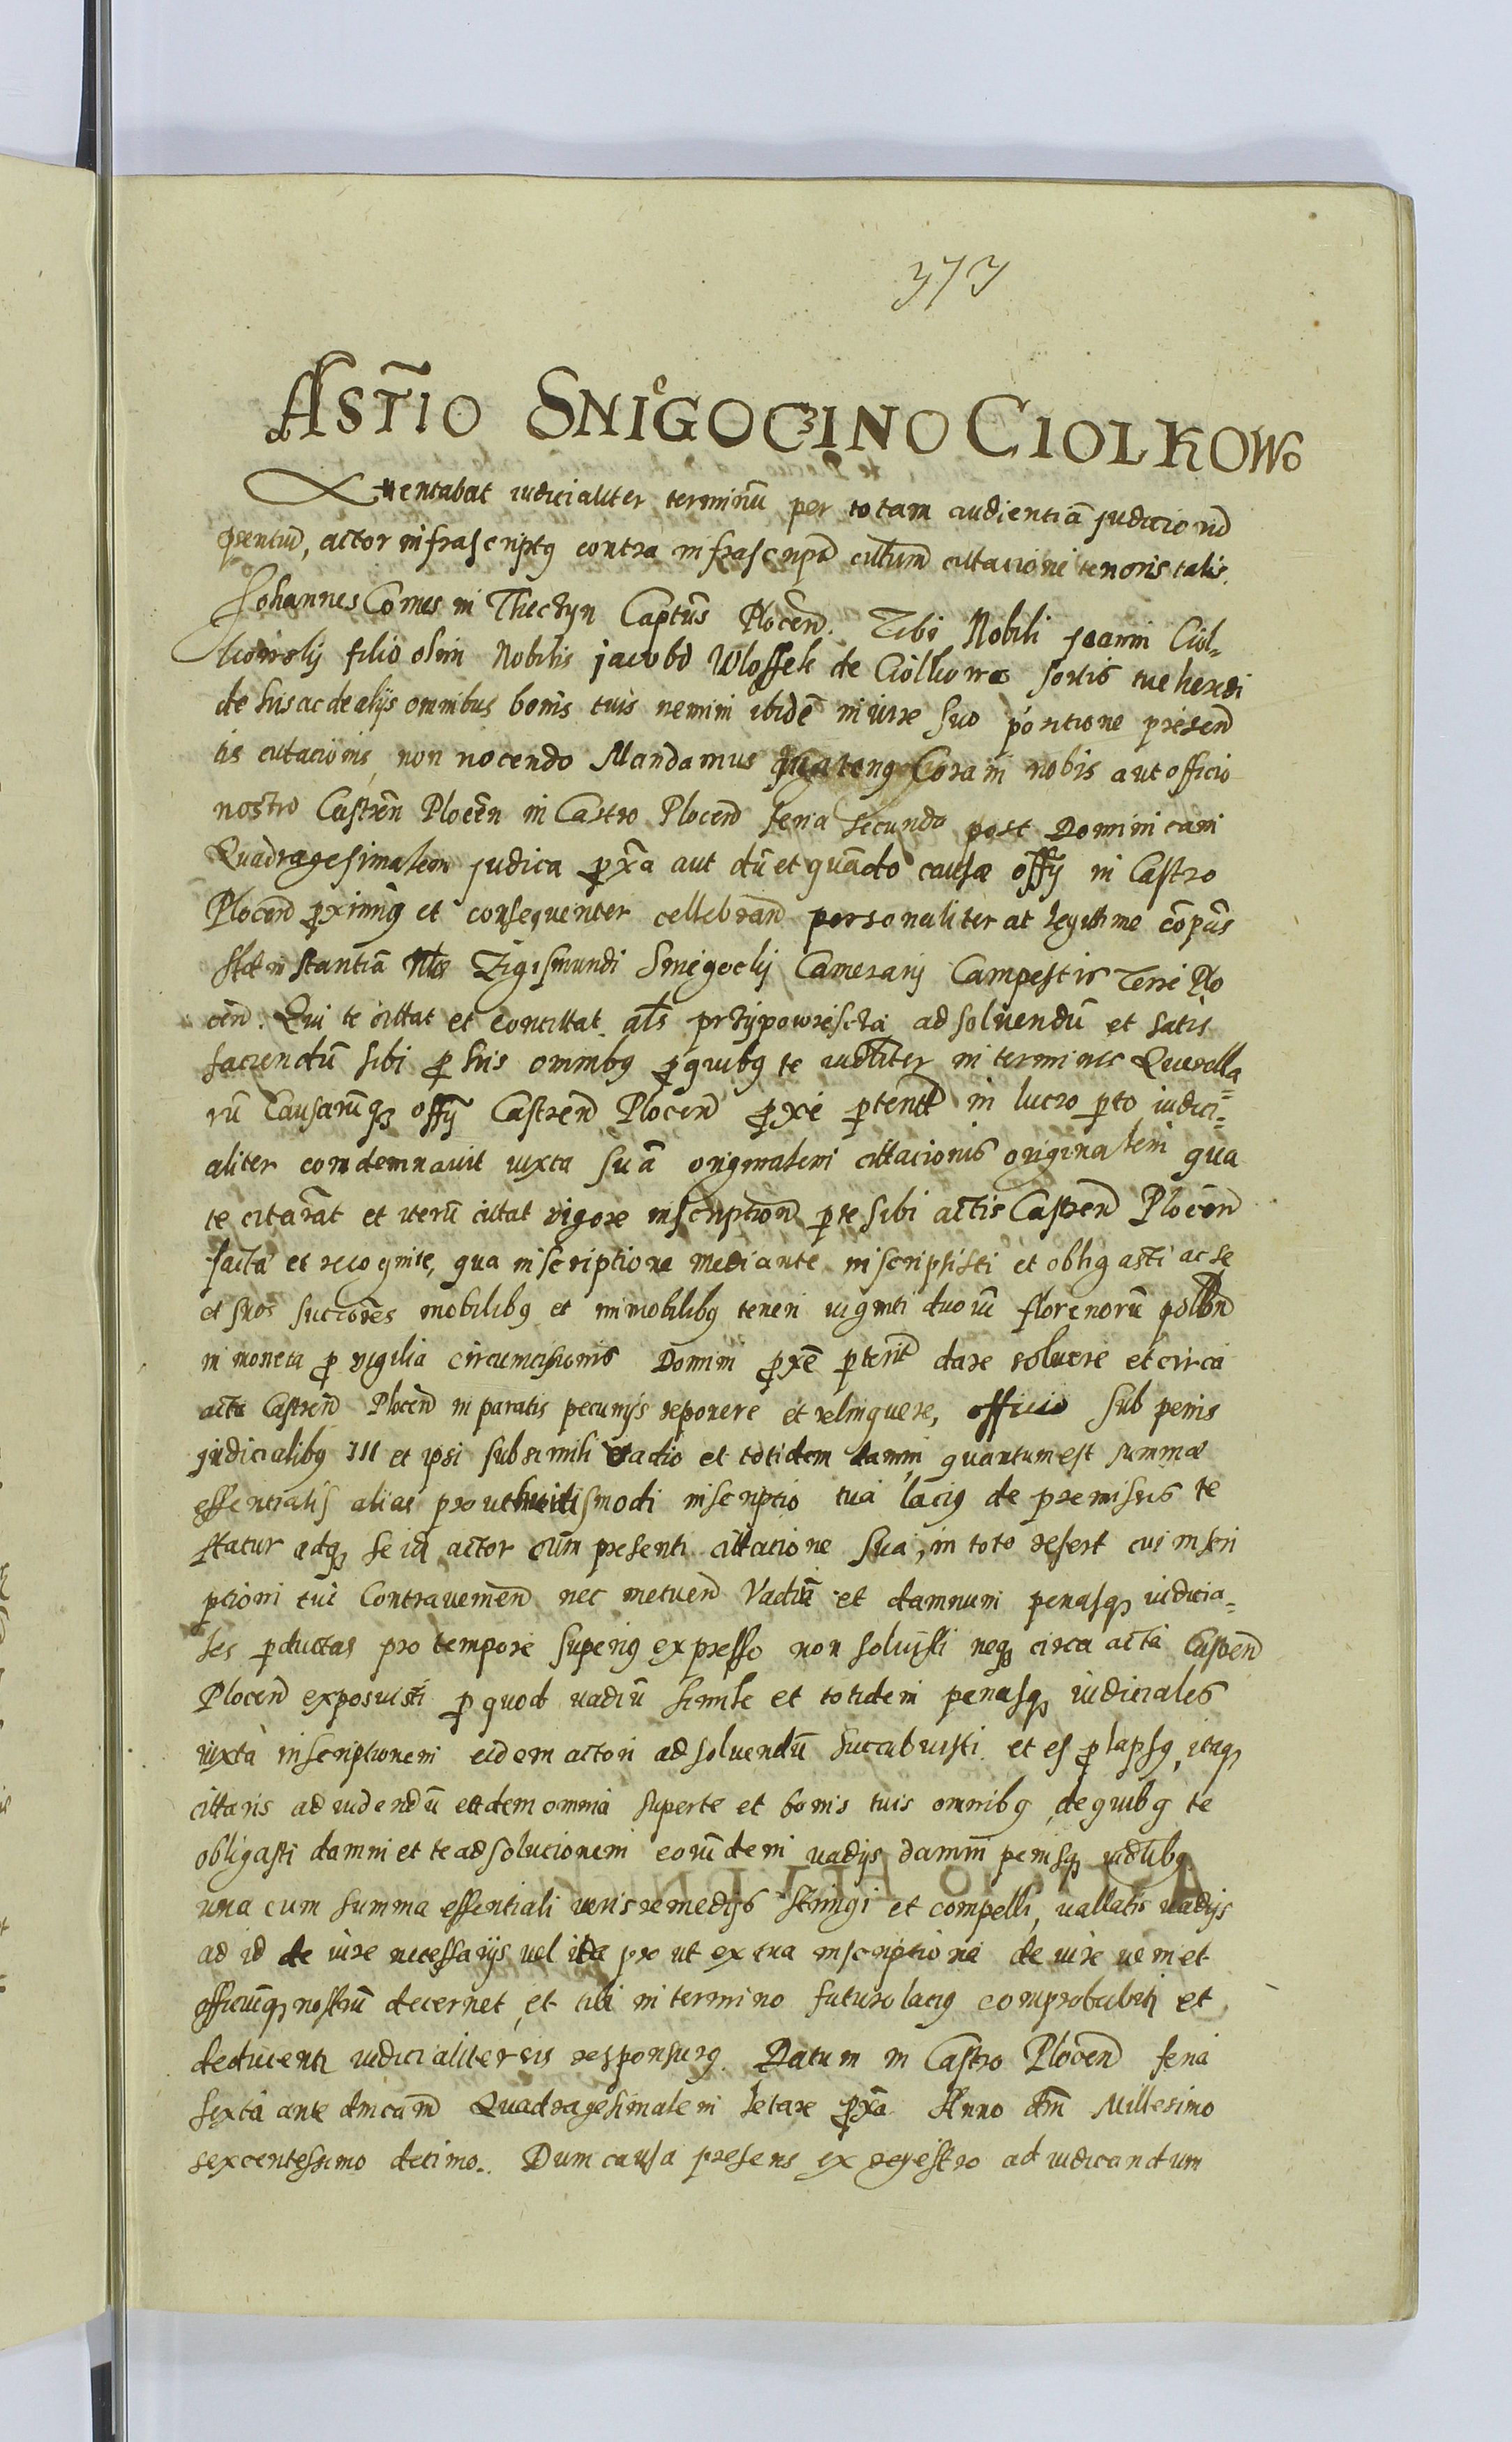 373
ASTIO SNIGOCZINO CIOLKOWO
Attentabat iudicialiter terminū per totam audientiā judiciorū
pŕntiū, actor infrascriptꝯ contra infrascriptū citatum citacione tenoris talis.
Johannes Comes in Thecżyn Captūs Plocen. Tibi Nobili Joanni Ciol-
kowsky filio olim Nobilis jacobi Wlossek de Ciolkowo sortis tue heredi
de his ac de alijs omnibus bonis tuis nemini ibidē in iure suo positione presen
tis citacionis non nocendo Mandamus quatenꝯ Coram nobis aut officio
nostro Castren Plocen in Castro Plocen feria secunda post Dominicam
Quadragesimalem judica ꝓx̄a aut dū et quādo causæ offy in Castro
Plocen ꝓximiꝯ et consequenter cellebran personaliter at legittime cōpās
Ad instantiā Nłis Zigismundi Smigocky Camerarij Campestris Terre Plo
cen. Qui te cittat et concittat als przypowiescza ad solvendū et satis
faciendū sibi ꝓ his omnibꝯ ꝓ quibꝯ te iudłiter in terminis Querella
rū Causarūqꝫ offy Castren Plocen ꝓxe ꝑterit in lucro ꝑto iudici-
aliter condemnavit iuxta suā originalem cittacionis originalem qua
te citarat et iterū cittat vigore inscription ꝑ te sibi actis Castren Plocen
facta et recognite, qua inscriptione mediante inscripsisti et obligasti ac se
et suos succores mobilibꝯ et immobilibꝯ teneri viginti duorū florenorū pollon
in moneta ꝓ vigilia circumcisionis Domini ꝓxē ꝑterit dare solvere et circa
acta Castren Plocen in paratis pecunijs reponere et relinquere, officio sub penis
judicialibꝯ III et ipsi sub simili vadio et totidem damni quantum est summæ
essentialis alias prout huiusmodi inscriptio tua laciꝯ de premissis te
statur adqꝫ se id actor cum presenti cittacione sua, in toto refert cui inscri
ptioni tue Contravenien nec metuen Vadiū et damnum penasqꝫ iudicia-
les ꝑductas pro tempore superiꝯ expresso non solvisti neqꝫ circa acta Castren
Plocen exposuisti ꝑ quod vadiū simile et totidem penasqꝫ iudiciales
iuxta inscriptionem eidem actori ad solvendū succubuisti et es ꝓlapsꝯ, itaqꝫ
cittaris ad videndū eadem omnia super te et bonis tuis omnibꝯ, de quibꝯ te
obligasti damni et te ad solucionem eorūdem vadijs damni penisqꝫ iudlibꝯ
una cum summa essentiali iuris remedijs stringi et compelli, vallatis vadijs
ad id de iure necessarijs vel ita pro ut ex tua inscriptione de iure veniet
officiūqꝫ nostrū decernet, et tibi in termino futuro laciꝯ comprobabit et
deducenti iudicialiter sis responsurꝯ. Datum in Castro Plocen feria
sexta ante dnicam Quadragesimalem letare ꝓx̄a Anno dm̄ Millesimo
sexcentessimo decimo. Dum causa presens ex regestro ad iudicandum